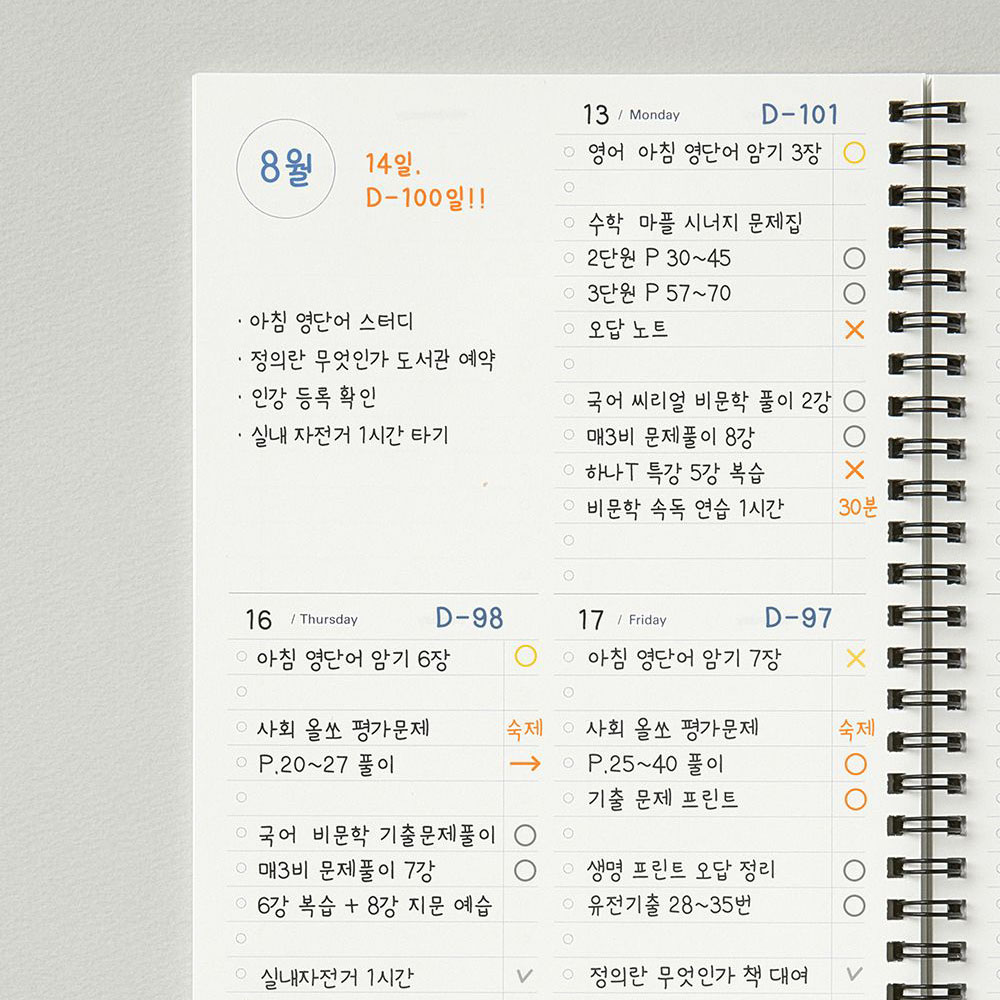 8월
14일.
D-100일!!
· 아침 영단어 스터디
· 정의란 무엇인가 도서관 예약
· 인강 등록 확인
· 실내 자전거 1시간 타기
13 / Monday D-101
영어 아침 영단어 암기 3장
수학 마플 시너지 문제집
2단원 P 30~45
3단원 P 57~70
오답 노트
국어 씨리얼 비문학 풀이 2강
매3비 문제풀이 8강
하나T 특강 5강 복습
비문학 속독 연습 1시간 30분
16 / Thursday D-98
아침 영단어 암기 6장
사회 올쏘 평가문제 숙제
P.20~27 풀이 →
국어 비문학 기출문제풀이
매3비 문제풀이 7강
6강 복습 + 8강 지문 예습
실내자전거 1시간
17 / Friday D-97
아침 영단어 암기 7장
사회 올쏘 평가문제 숙제
P.25~40 풀이
기출 문제 프린트
생명 프린트 오답 정리
유전기출 28~35번
정의란 무엇인가 책 대여